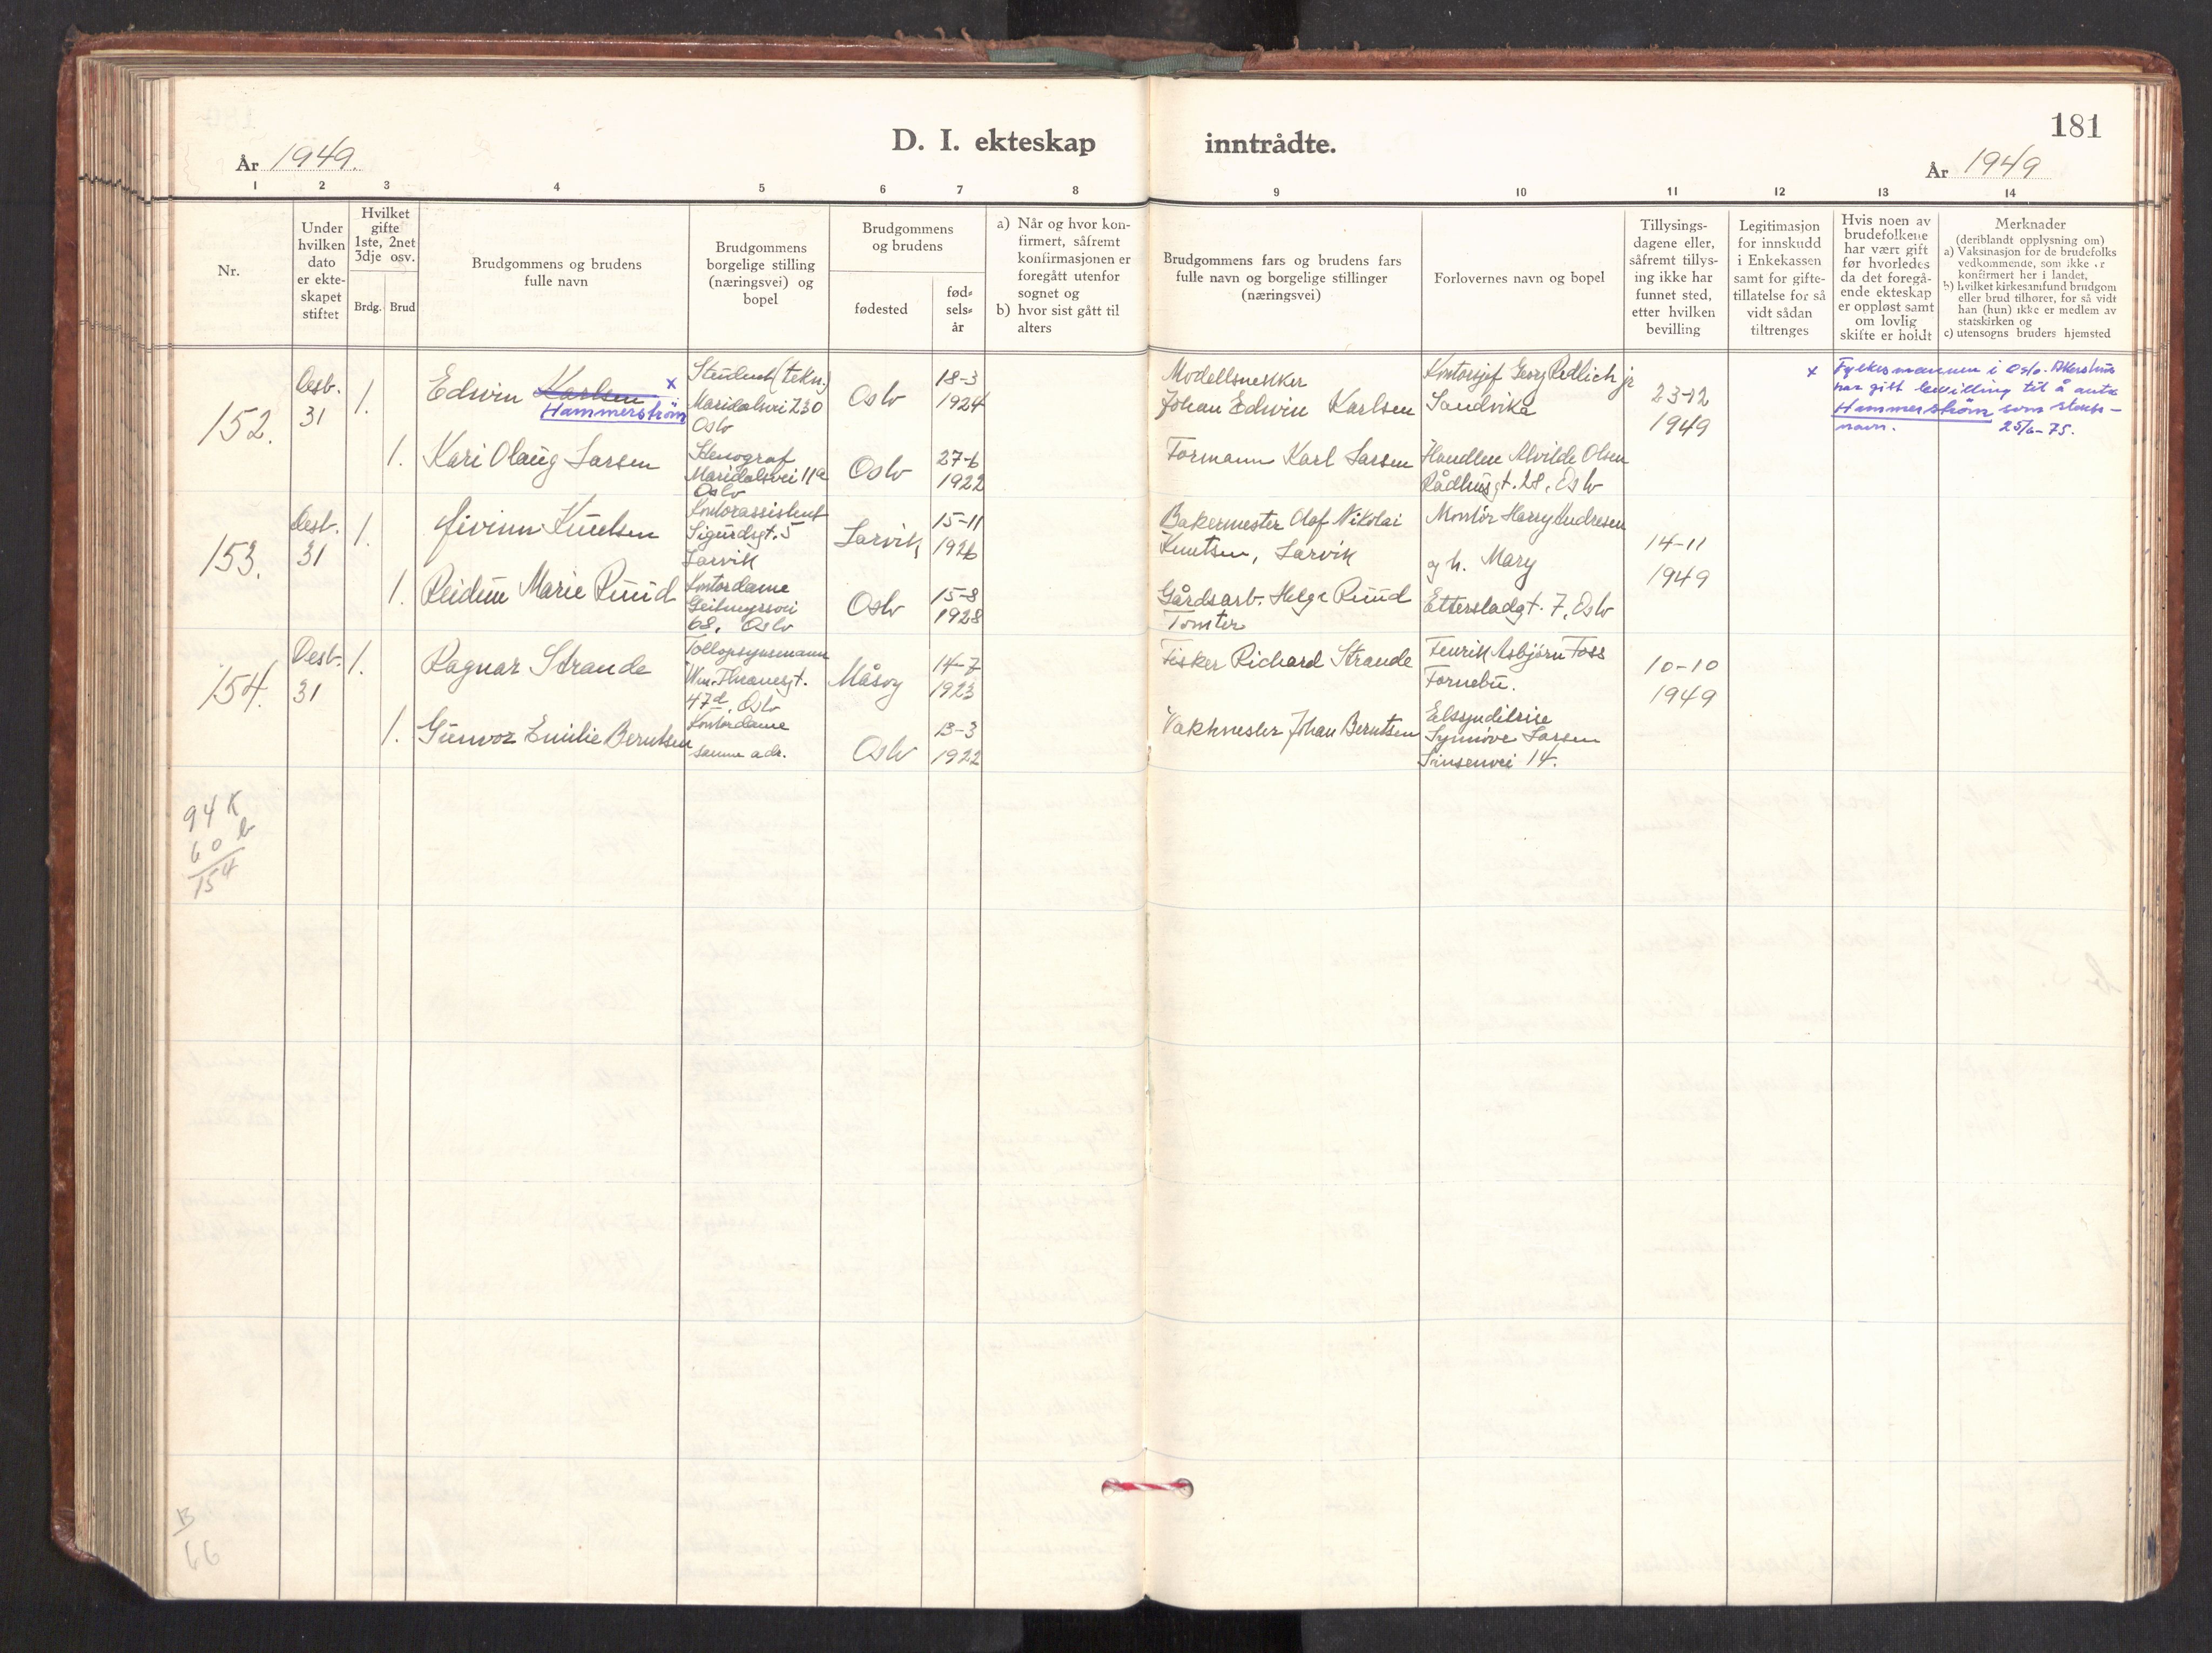 181
D. I. ekteskap inntrådte.
År 1949.
År 1949
1 2 3 4 5 6 7 8 9 10 11 12 13 14
Nr.
Under
hvilken
dato
er ekte-
skapet
stiftet
Hvilket
gifte
1ste, 2net
3dje osv.
Brdg. Brud
Brudgommens og brudens
fulle navn
Brudgommens
borgelige stilling
(næringsvei) og
bopel
Brudgommens
og brudens
fødested
fød-
sels-
år
a) Når og hvor kon-
firmert, såfremt
konfirmasjonen er
foregått utenfor
sognet og
b) hvor sist gått til
alters
Brudgommens fars og brudens fars
fulle navn og borgelige stillinger
(næringsvei)
Forlovernes navn og bopel
Tillysings-
dagene eller,
såfremt tillys-
ing ikke har
funnet sted,
etter hvilken
bevilling
Legitimasjon
for innskudd
i Enkekassen
samt for gifte-
tillatelse for så
vidt sådan
tiltrenges
Hvis noen av
brudefolkene
har vært gift
før hvorledes
da det foregå-
ende ekteskap
er oppløst samt
om lovlig
skifte er holdt
Merknader
(deriblandt opplysning om)
a) Vaksinasjon for de brudefolks
vedkommende, som ikke er
konfirmert her i landet,
b) hvilket kirkesamfund brudgom
eller brud tilhører, for så vidt
han (hun) ikke er medlem av
statskirken og
c) utensogns bruders hjemsted
152.
Desb.
31
1.
Edwin Karlsen x
Hammerström
Student (tekn.)
Maridalsvei 230
Oslo
Oslo
18-3
1924
Modellsnekker
Johan Edwin Karlsen
Kontorsjef Georg Redlich jr
Sandvika
23-12
1949
x Fylkesmannen i Oslo. Akershus
har gitt bevilling til å anta
Hammerström som slekts-
navn. 25/6-75.
1.
Kari Olaug Larsen
Stenograf
Maridalsvei 11a
Oslo
Oslo
27-6
1922
Formann Karl Larsen
Alvilde Olsen
Rådhusgt. 28, Oslo
153.
Desb.
31
1.
Eivinn Knutsen
Kontorassistent
Sigurdsgt. 5
Larvik
Larvik
15-11
1926
Bakermester Olaf Nikolai
Knutsen, Larvik
Montör Harry Andresen
og h. Mary
Etterstadgt. 7, Oslo
14-11
1949
1.
Reidun Marie Ruud
Kontordame
Geitmyrsvei
68, Oslo
Oslo
15-8
1928
Gårdsarb. Helge Ruud
Tomter
154.
Desb.
31
1.
Ragnar Strande
Tollopsynsmann
Wm. Thranesgt.
47d, Oslo
Måsøy
14-7
1923
Fisker Richard Strande
Fenrik Asbjørn Foss
Fornebu.
10-10
1949
1.
Gunvor Emilie Berntsen
Kontordame
samme adr.
Oslo
13-3
1922
Vaktmester Johan Berntsen
Synnöve Larsen
Sinsenvei 14.
94 K
60 b
154
13
66